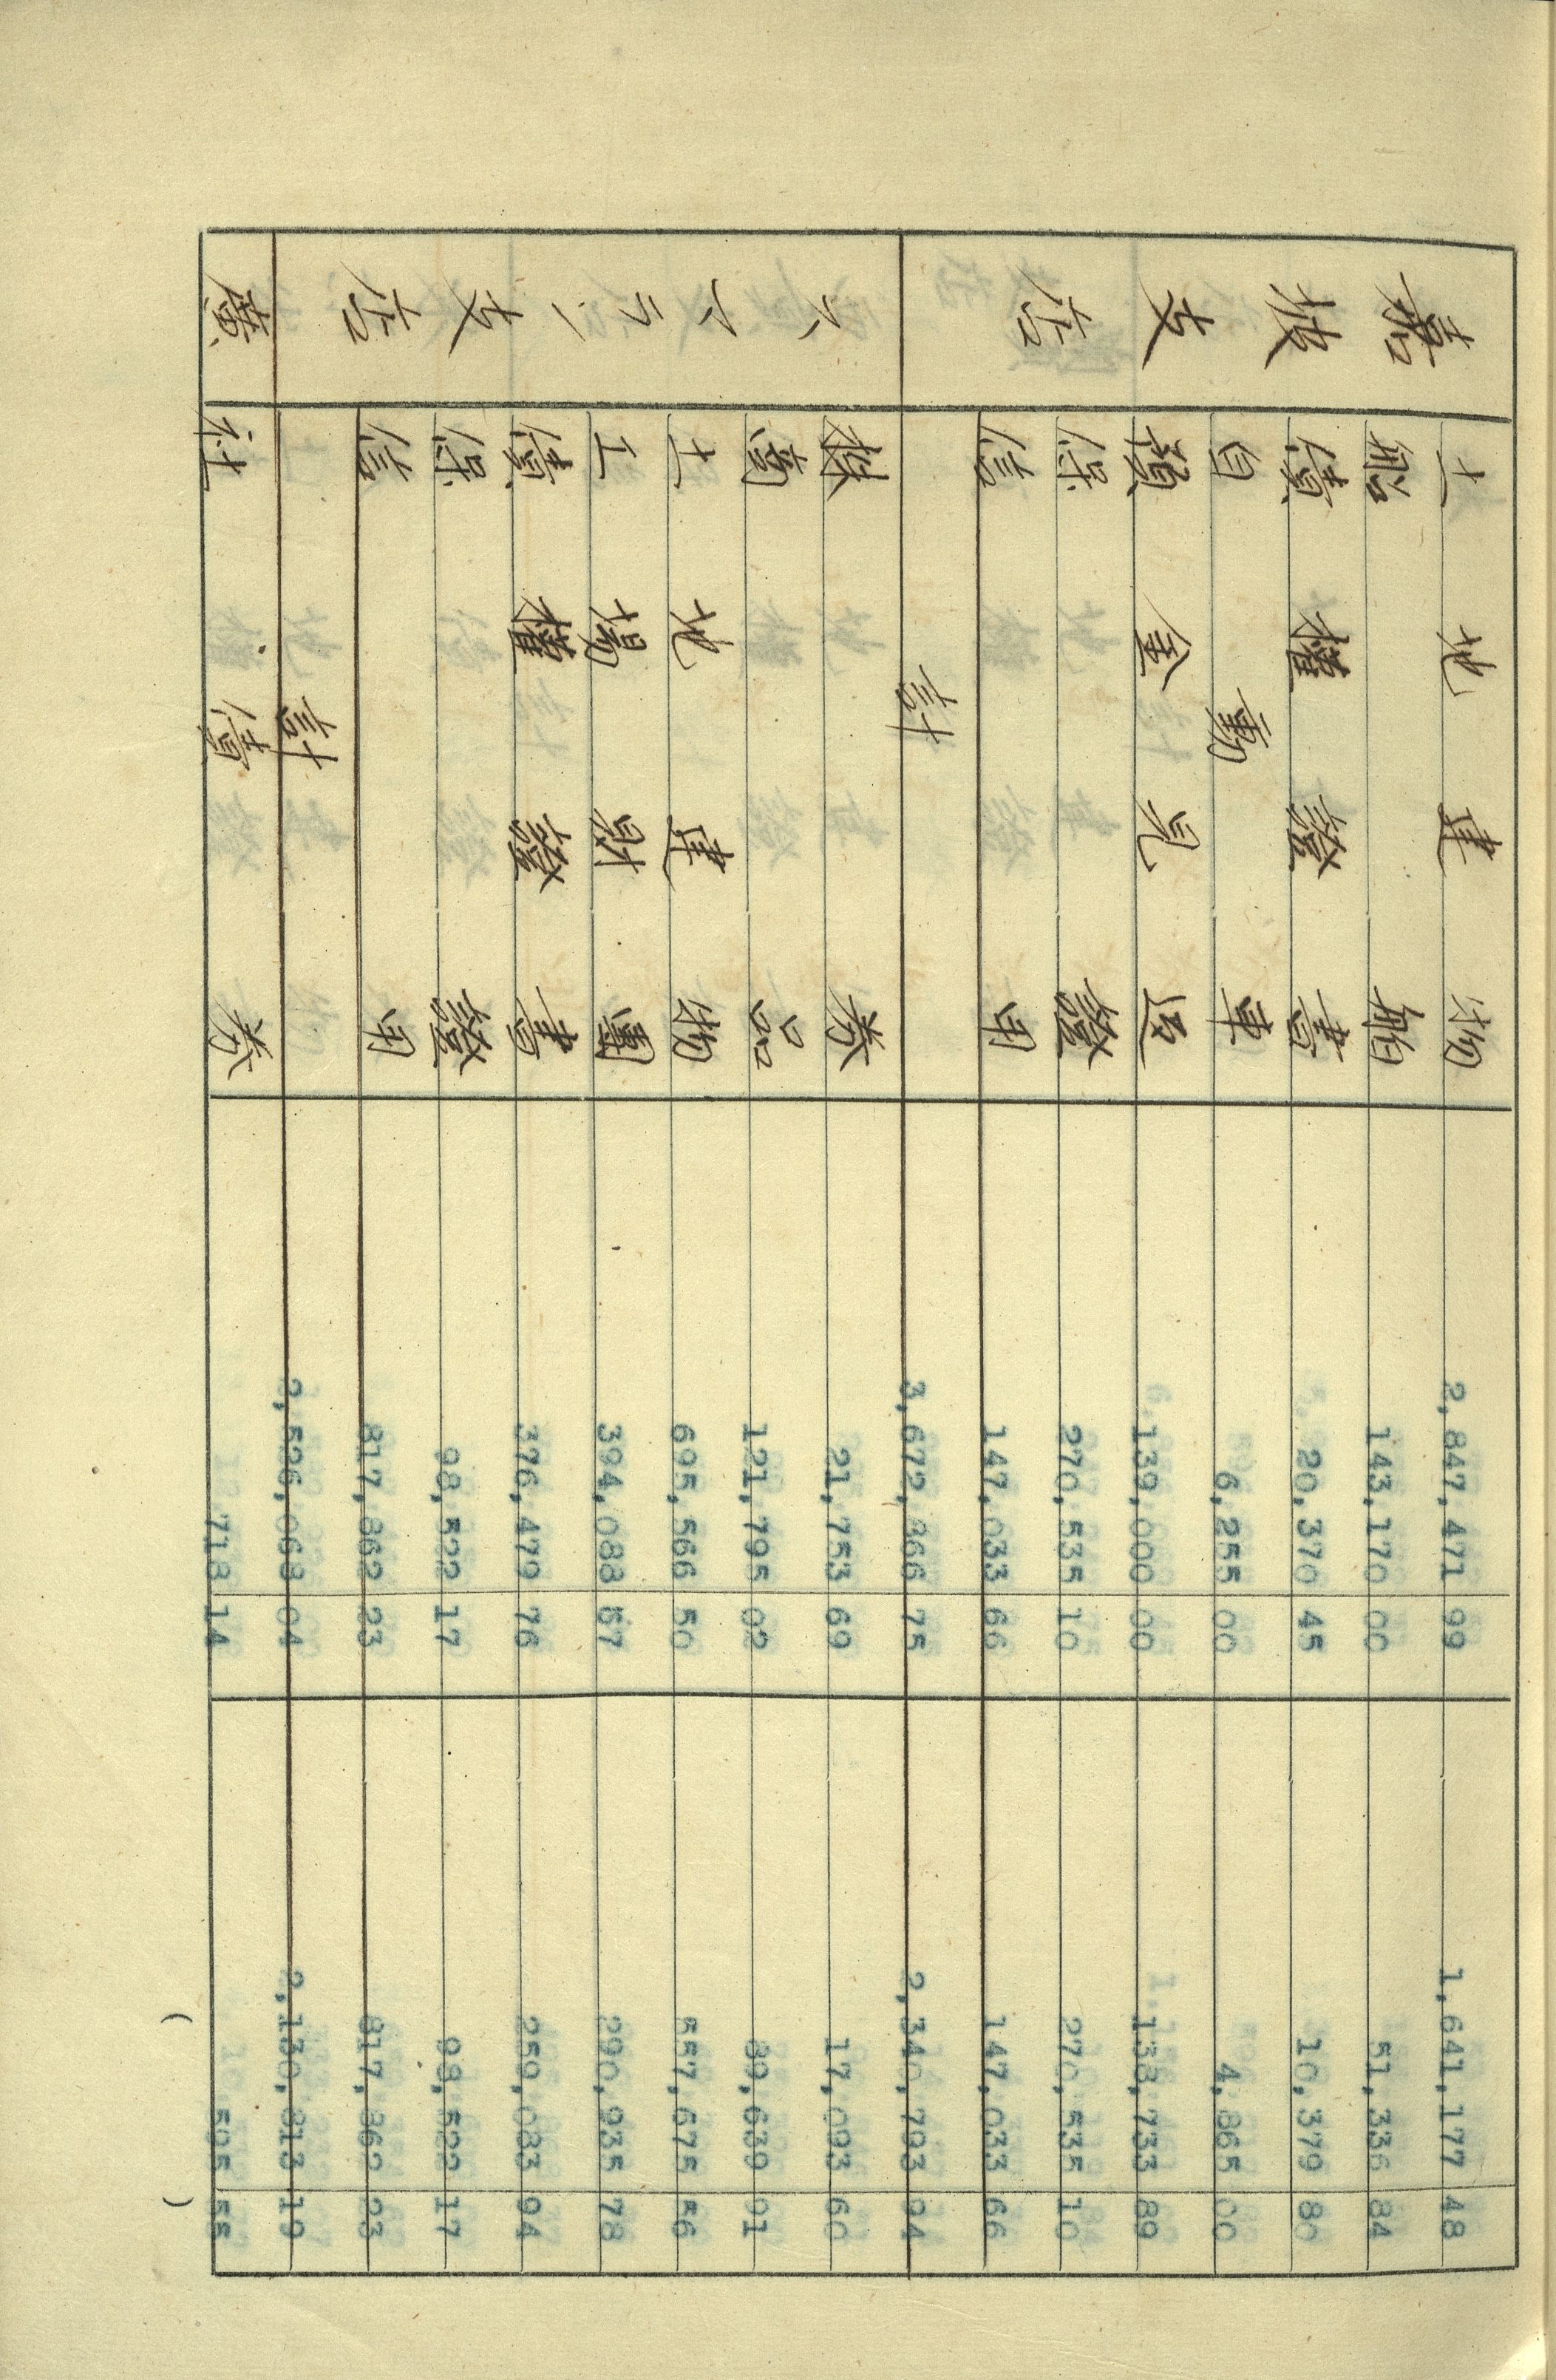 嘉坡支店
土地建物 2,847,471 99 1,641,177 48
船舶 143,170 00 51,336 84
債權證書 20,370 45 10,379 80
自動車 6,255 00 4,865 00
預金見返 139,000 00 138,733 89
保證 270,535 10 270,535 10
信用 147,033 66 147,033 66
計 3,672,866 75 2,340,793 94
スマラン支店
株券 21,753 69 17,093 60
商品 121,795 02 89,639 91
土地建物 695,566 50 557,675 56
工場財團 394,088 67 290,935 78
債權證書 376,479 76 259,083 94
保證 98,522 17 98,522 17
信用 817,862 23 817,862 23
計 2,526,068 04 2,130,813 19
廣
社債券 718 14 595 55
( )